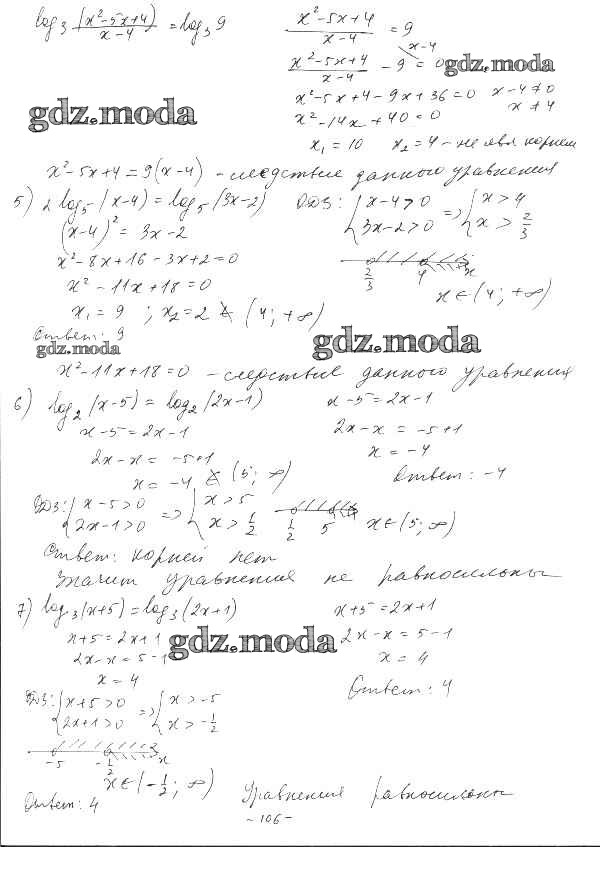 log₃ (x²-5x+4)/(x-4) = log₃ 9
(x²-5x+4)/(x-4) = 9
(x²-5x+4)/(x-4) - 9 = 0
x-4
gdz.moda
x²-5x+4-9x+36=0 x-4≠0
x≠4
gdz.moda
x²-14x+40=0
x₁=10 x₂=4 - не явл корнем
x²-5x+4=9(x-4) - следствие данного уравнения
5) 2log₅(x-4)=log₅(3x-2) ОДЗ: {x-4>0 => {x>4
3x-2>0 x>2/3
(x-4)²=3x-2
x²-8x+16-3x+2=0
x²-11x+18=0
2/3 4 x
x∈(4;+∞)
x₁=9; x₂=2 ∉ (4;+∞)
Ответ: 9
gdz.moda
gdz.moda
x²-11x+18=0 - следствие данного уравнения
6) log₂(x-5)=log₂(2x-1) x-5=2x-1
x-5=2x-1 2x-x=-5+1
2x-x=-5+1 x=-4
x=-4 ∉ (5;∞) Ответ: -4
ОДЗ: {x-5>0 => {x>5
2x-1>0 x>1/2
1/2 5 x∈(5;∞)
Ответ: корней нет
Значит уравнения не равносильны
7) log₃(x+5)=log₃(2x+1) x+5=2x+1
x+5=2x+1 gdz.moda 2x-x=5-1
2x-x=5-1 x=4
x=4 Ответ: 4
ОДЗ: {x+5>0 => {x>-5
2x+1>0 x>-1/2
-5 -1/2 x
x∈(-1/2;∞)
Ответ: 4 Уравнения равносильны
-106-